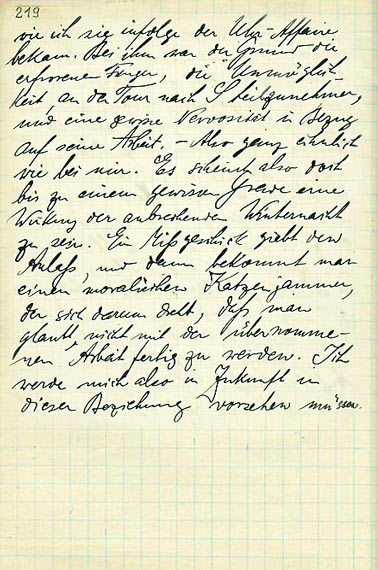 219
wie ich sie infolge der Uhr-Affaire
bekam. Bei ihm war der Grund die
erfrorenen Finger, die Unmöglich-
keit, an der Tour nach S teilzunehmen,
und eine gewisse Nervosität in Bezug
auf seine Arbeit. – Also ganz ähnlich
wie bei mir. Es scheint also doch
bis zu einem gewissen Grade eine
Wirkung der anbrechenden Winternacht
zu sein. Ein Mißgeschick giebt den
Anlaß, und dann bekommt man
einen moralischen Katzenjammer,
der sich darum dreht, daß man
glaubt nicht mit der übernomme-
nen Arbeit fertig zu werden. Ich
werde mich also in Zukunft in
dieser Beziehung vorsehen müssen.